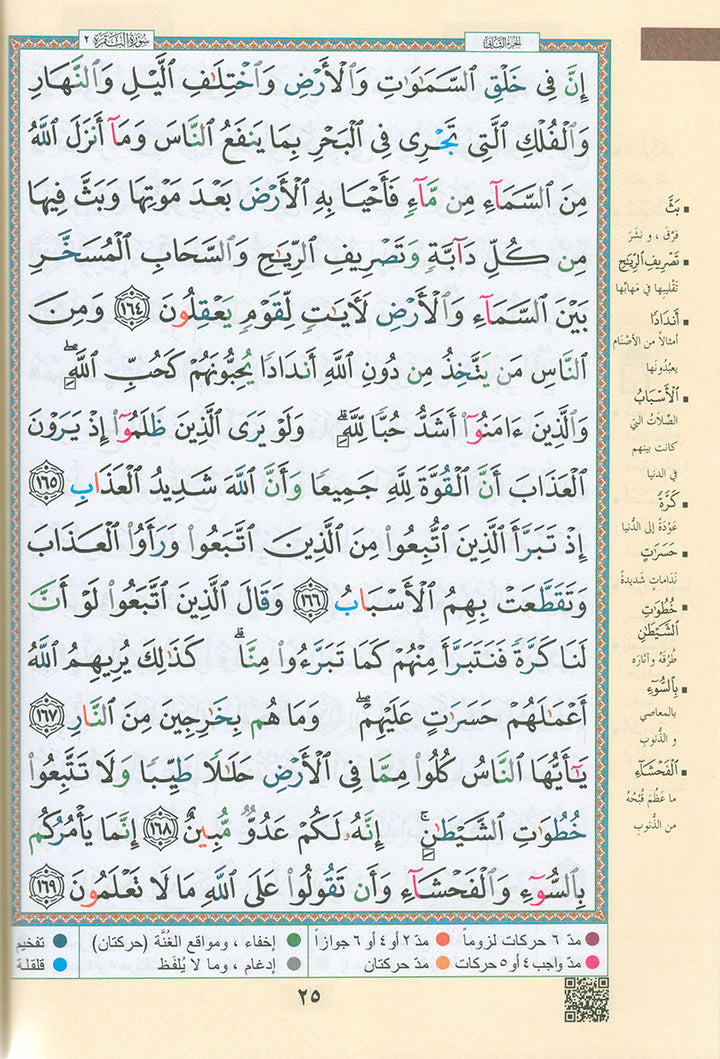 سُورَةُ البَقَرَةِ ٢
الجزء الثاني
إِنَّ فِي خَلْقِ ٱلسَّمَٰوَٰتِ وَٱلْأَرْضِ وَٱخْتِلَٰفِ ٱلَّيْلِ وَٱلنَّهَارِ
وَٱلْفُلْكِ ٱلَّتِي تَجْرِي فِي ٱلْبَحْرِ بِمَا يَنفَعُ ٱلنَّاسَ وَمَآ أَنزَلَ ٱللَّهُ
مِنَ ٱلسَّمَآءِ مِن مَّآءٍ فَأَحْيَا بِهِ ٱلْأَرْضَ بَعْدَ مَوْتِهَا وَبَثَّ فِيهَا
مِن كُلِّ دَآبَّةٍ وَتَصْرِيفِ ٱلرِّيَٰحِ وَٱلسَّحَابِ ٱلْمُسَخَّرِ
بَيْنَ ٱلسَّمَآءِ وَٱلْأَرْضِ لَأٓيَٰتٍ لِّقَوْمٍ يَعْقِلُونَ ١٦٤ وَمِنَ
ٱلنَّاسِ مَن يَتَّخِذُ مِن دُونِ ٱللَّهِ أَندَادًا يُحِبُّونَهُمْ كَحُبِّ ٱللَّهِۖ
وَٱلَّذِينَ ءَامَنُوٓا۟ أَشَدُّ حُبًّا لِّلَّهِۗ وَلَوْ يَرَى ٱلَّذِينَ ظَلَمُوٓا۟ إِذْ يَرَوْنَ
ٱلْعَذَابَ أَنَّ ٱلْقُوَّةَ لِلَّهِ جَمِيعًا وَأَنَّ ٱللَّهَ شَدِيدُ ٱلْعَذَابِ ١٦٥
إِذْ تَبَرَّأَ ٱلَّذِينَ ٱتُّبِعُوا۟ مِنَ ٱلَّذِينَ ٱتَّبَعُوا۟ وَرَأَوُا۟ ٱلْعَذَابَ
وَتَقَطَّعَتْ بِهِمُ ٱلْأَسْبَابُ ١٦٦ وَقَالَ ٱلَّذِينَ ٱتَّبَعُوا۟ لَوْ أَنَّ
لَنَا كَرَّةً فَنَتَبَرَّأَ مِنْهُمْ كَمَا تَبَرَّءُوا۟ مِنَّاۗ كَذَٰلِكَ يُرِيهِمُ ٱللَّهُ
أَعْمَٰلَهُمْ حَسَرَٰتٍ عَلَيْهِمْۖ وَمَا هُم بِخَٰرِجِينَ مِنَ ٱلنَّارِ ١٦٧
يَٰٓأَيُّهَا ٱلنَّاسُ كُلُوا۟ مِمَّا فِي ٱلْأَرْضِ حَلَٰلًا طَيِّبًا وَلَا تَتَّبِعُوا۟
خُطُوَٰتِ ٱلشَّيْطَٰنِۚ إِنَّهُۥ لَكُمْ عَدُوٌّ مُّبِينٌ ١٦٨ إِنَّمَا يَأْمُرُكُم
بِٱلسُّوٓءِ وَٱلْفَحْشَآءِ وَأَن تَقُولُوا۟ عَلَى ٱللَّهِ مَا لَا تَعْلَمُونَ ١٦٩
بَثَّ
فرّق ، و نشَر
تَصْرِيفِ الرِّيَٰحِ
تَقْليبِها في مَهابِّها
أَندَادًا
أمثالاً من الأصْنَام
يعبُدُونَها
ٱلْأَسْبَابُ
الصِّلاتُ التي
كانت بينهم
في الدنيا
كَرَّةً
عَوْدَةً إلى الدُّنيا
حَسَرَٰتٍ
نَدَاماتٍ شَديدةً
خُطُوَٰتِ
ٱلشَّيْطَٰنِ
طُرُقَهُ وآثارَه
بِٱلسُّوٓءِ
بالمعاصي
و الذُّنوبِ
ٱلْفَحْشَآءِ
ما عَظُمَ قُبْحُهُ
من الذُّنوبِ
مدّ ٦ حركات لزوماً مدّ ٢ أو ٤ أو ٦ جوازاً إخفاء ، ومواقع الغُنَّة (حركتان) تفخيم
مدّ واجب ٤ أو ٥ حركات مدّ حركتان إدغام ، وما لا يُلفَظ قلقلة
٢٥